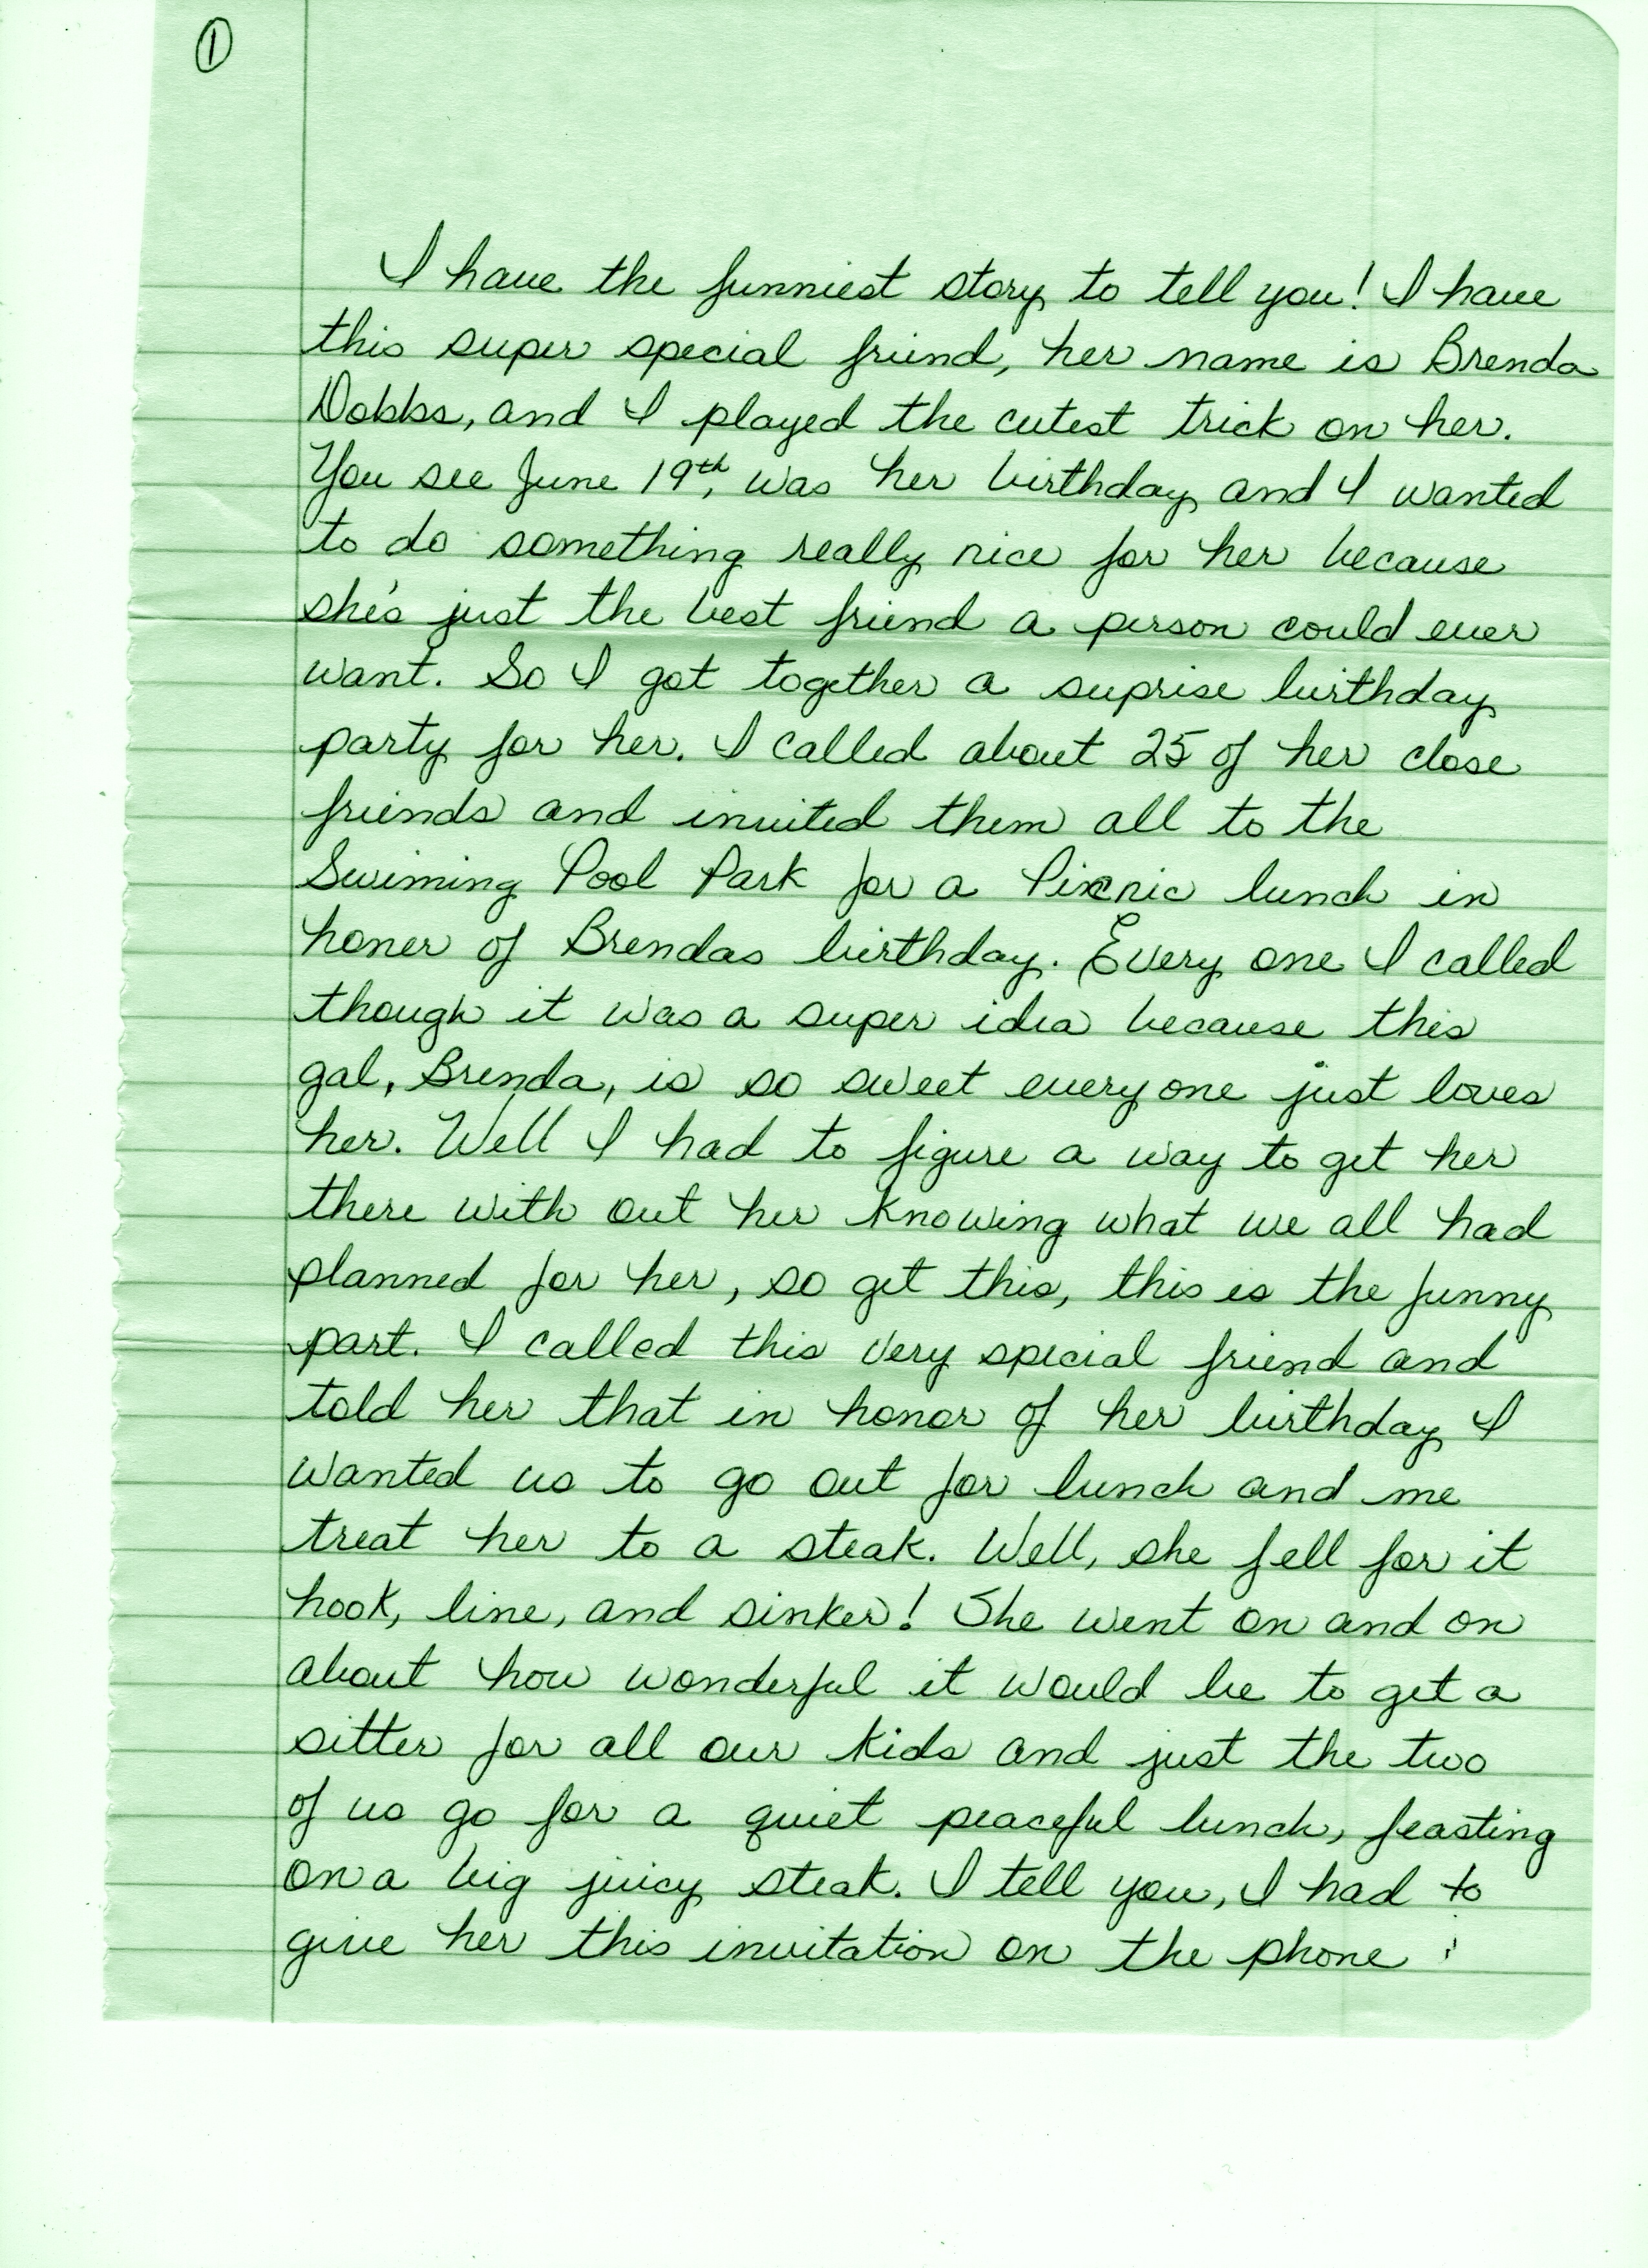 1
I have the funniest story to tell you! I have
this super special friend, her name is Brenda
Dobbs, and I played the cutest trick on her.
You see June 19th, was her birthday and I wanted
to do something really nice for her because
she's just the best friend a person could ever
want. So I got together a suprise birthday
party for her. I called about 25 of her close
friends and invited them all to the
Swiming Pool Park for a Picnic lunch in
honer of Brendas birthday. Every one I called
though it was a super idea because this
gal, Brenda, is so sweet every one just loves
her. Well I had to figure a way to get her
there with out her knowing what we all had
planned for her, so get this, this is the funny
part. I called this very special friend and
told her that in honor of her birthday I
wanted us to go out for lunch and me
treat her to a steak. Well, she fell for it
hook, line, and sinker! She went on and on
about how wonderful it would be to get a
sitter for all our kids and just the two
of us go for a quiet peaceful lunch, feasting
on a big juicy steak. I tell you, I had to
give her this invitation on the phone